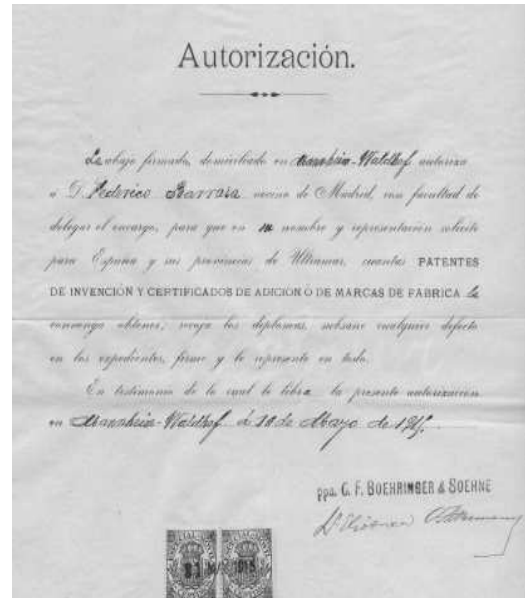 Autorización.
La abajo firmada, domiciliada en Mannheim-Waldhof autoriza
a D. Federico Barrasa vecino de Madrid, con facultad de
delegar el encargo, para que en su nombre y representación solicite
para España y sus provincias de Ultramar, cuantas PATENTES
DE INVENCIÓN Y CERTIFICADOS DE ADICIÓN Ó DE MARCAS DE FABRICA le
convenga obtener, recoja los diplomas, subsane cualquier defecto
en los expedientes, firme y le represente en todo.
En testimonio de lo cual le libra la presente autorización
en Mannheim-Waldhof á 10 de Mayo de
ppa. C. F. BOEHRINGER & SOEHNE